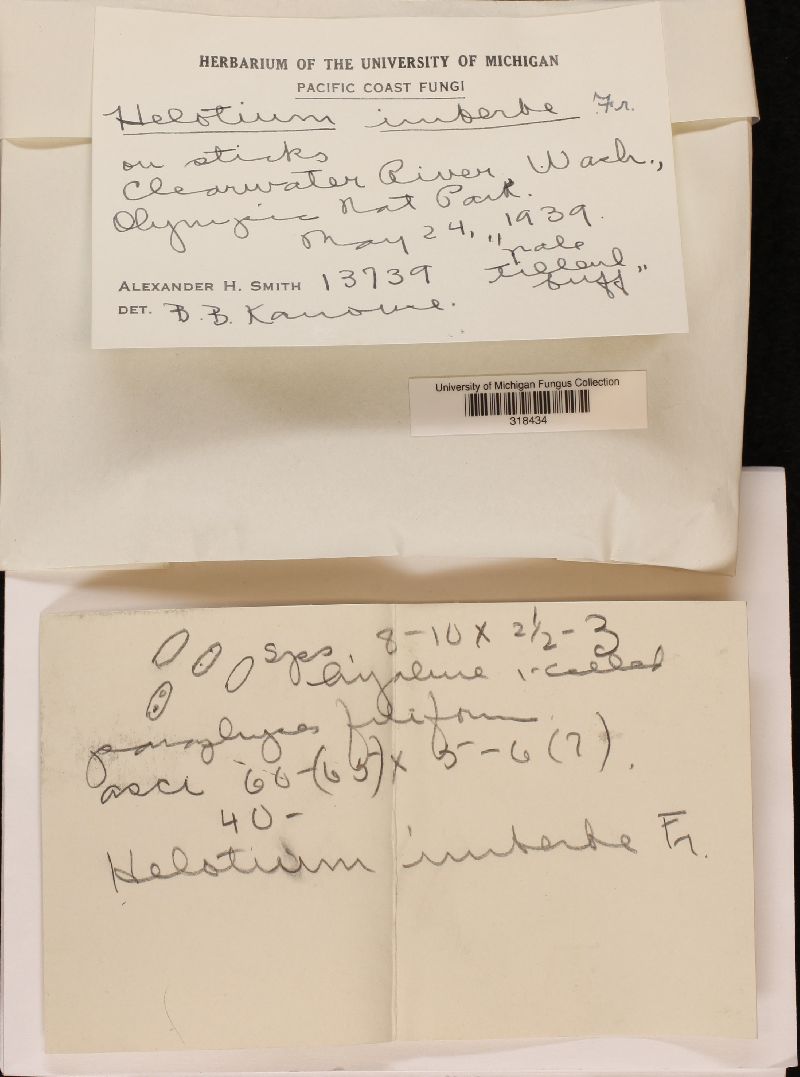 HERBARIUM OF THE UNIVERSITY OF MICHIGAN
PACIFIC COAST FUNGI
Helotium imberbe Fr.
on sticks
Clearwater River, Wash.,
Olympic Nat Park.
May 24, 1939.
"pale
tilleul
buff"
ALEXANDER H. SMITH 13739
DET. B. B. Kanouse.
University of Michigan Fungus Collection
318434
sps 8-10 x 2½-3
hyaline 1-celled
paraphyses filiform
asci 60-(65) x 5-6 (7).
40-
Helotium imberbe Fr.